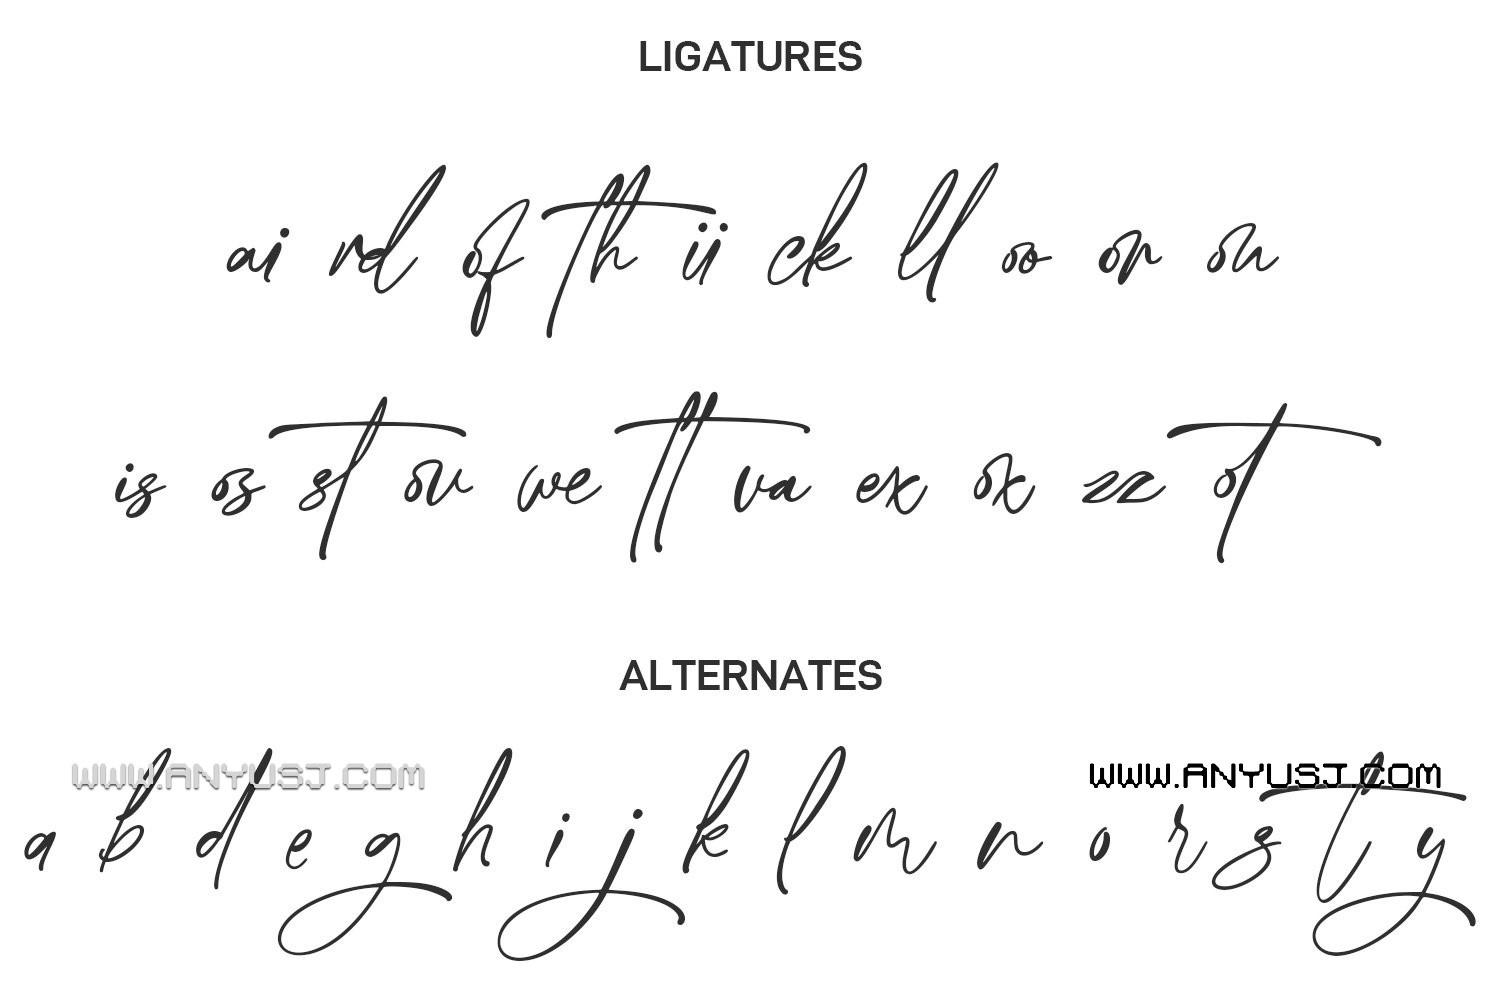 LIGATURES
ai rd of th ii ck ll oo or on
is os st ov we tt va ex ox zz ot
ALTERNATES
WWW.ANYUSJ.COM WWW.ANYUSJ.COM
a b d e g h i j k l m n o r s t y